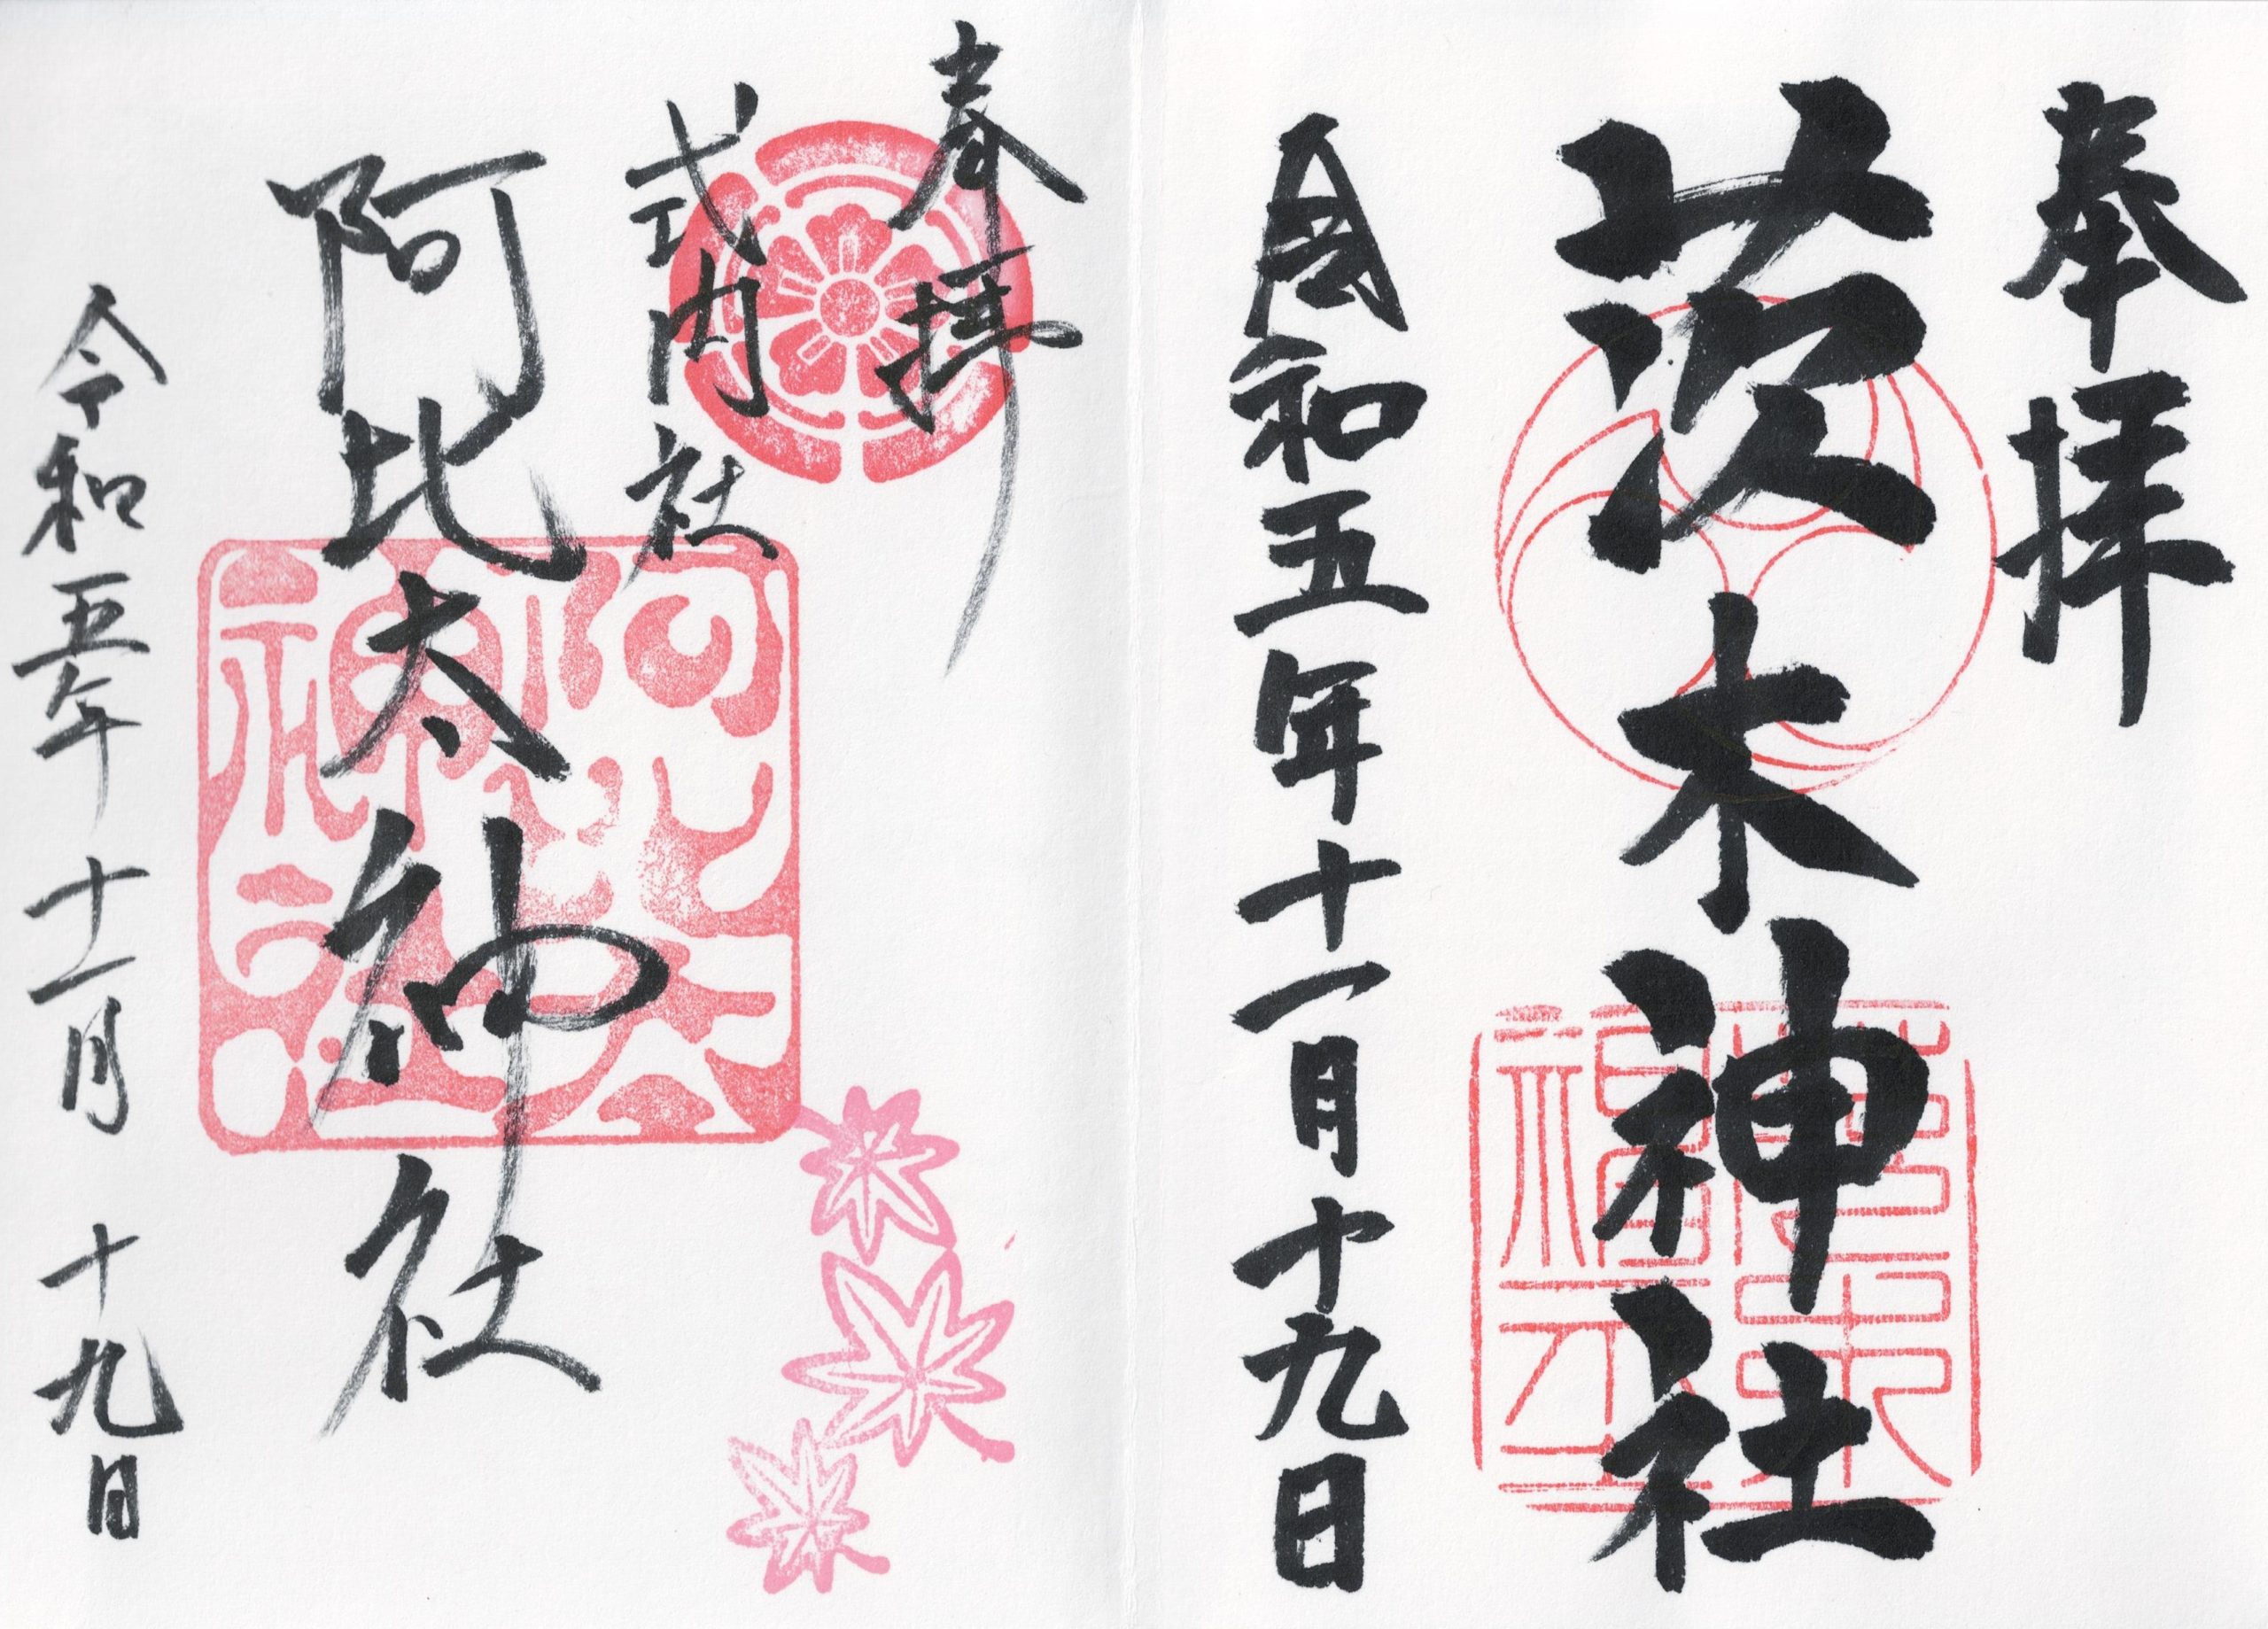 奉拝
茨木神社
令和五年十一月十九日
奉拝
式内社
阿比太神社
令和五年十一月十九日